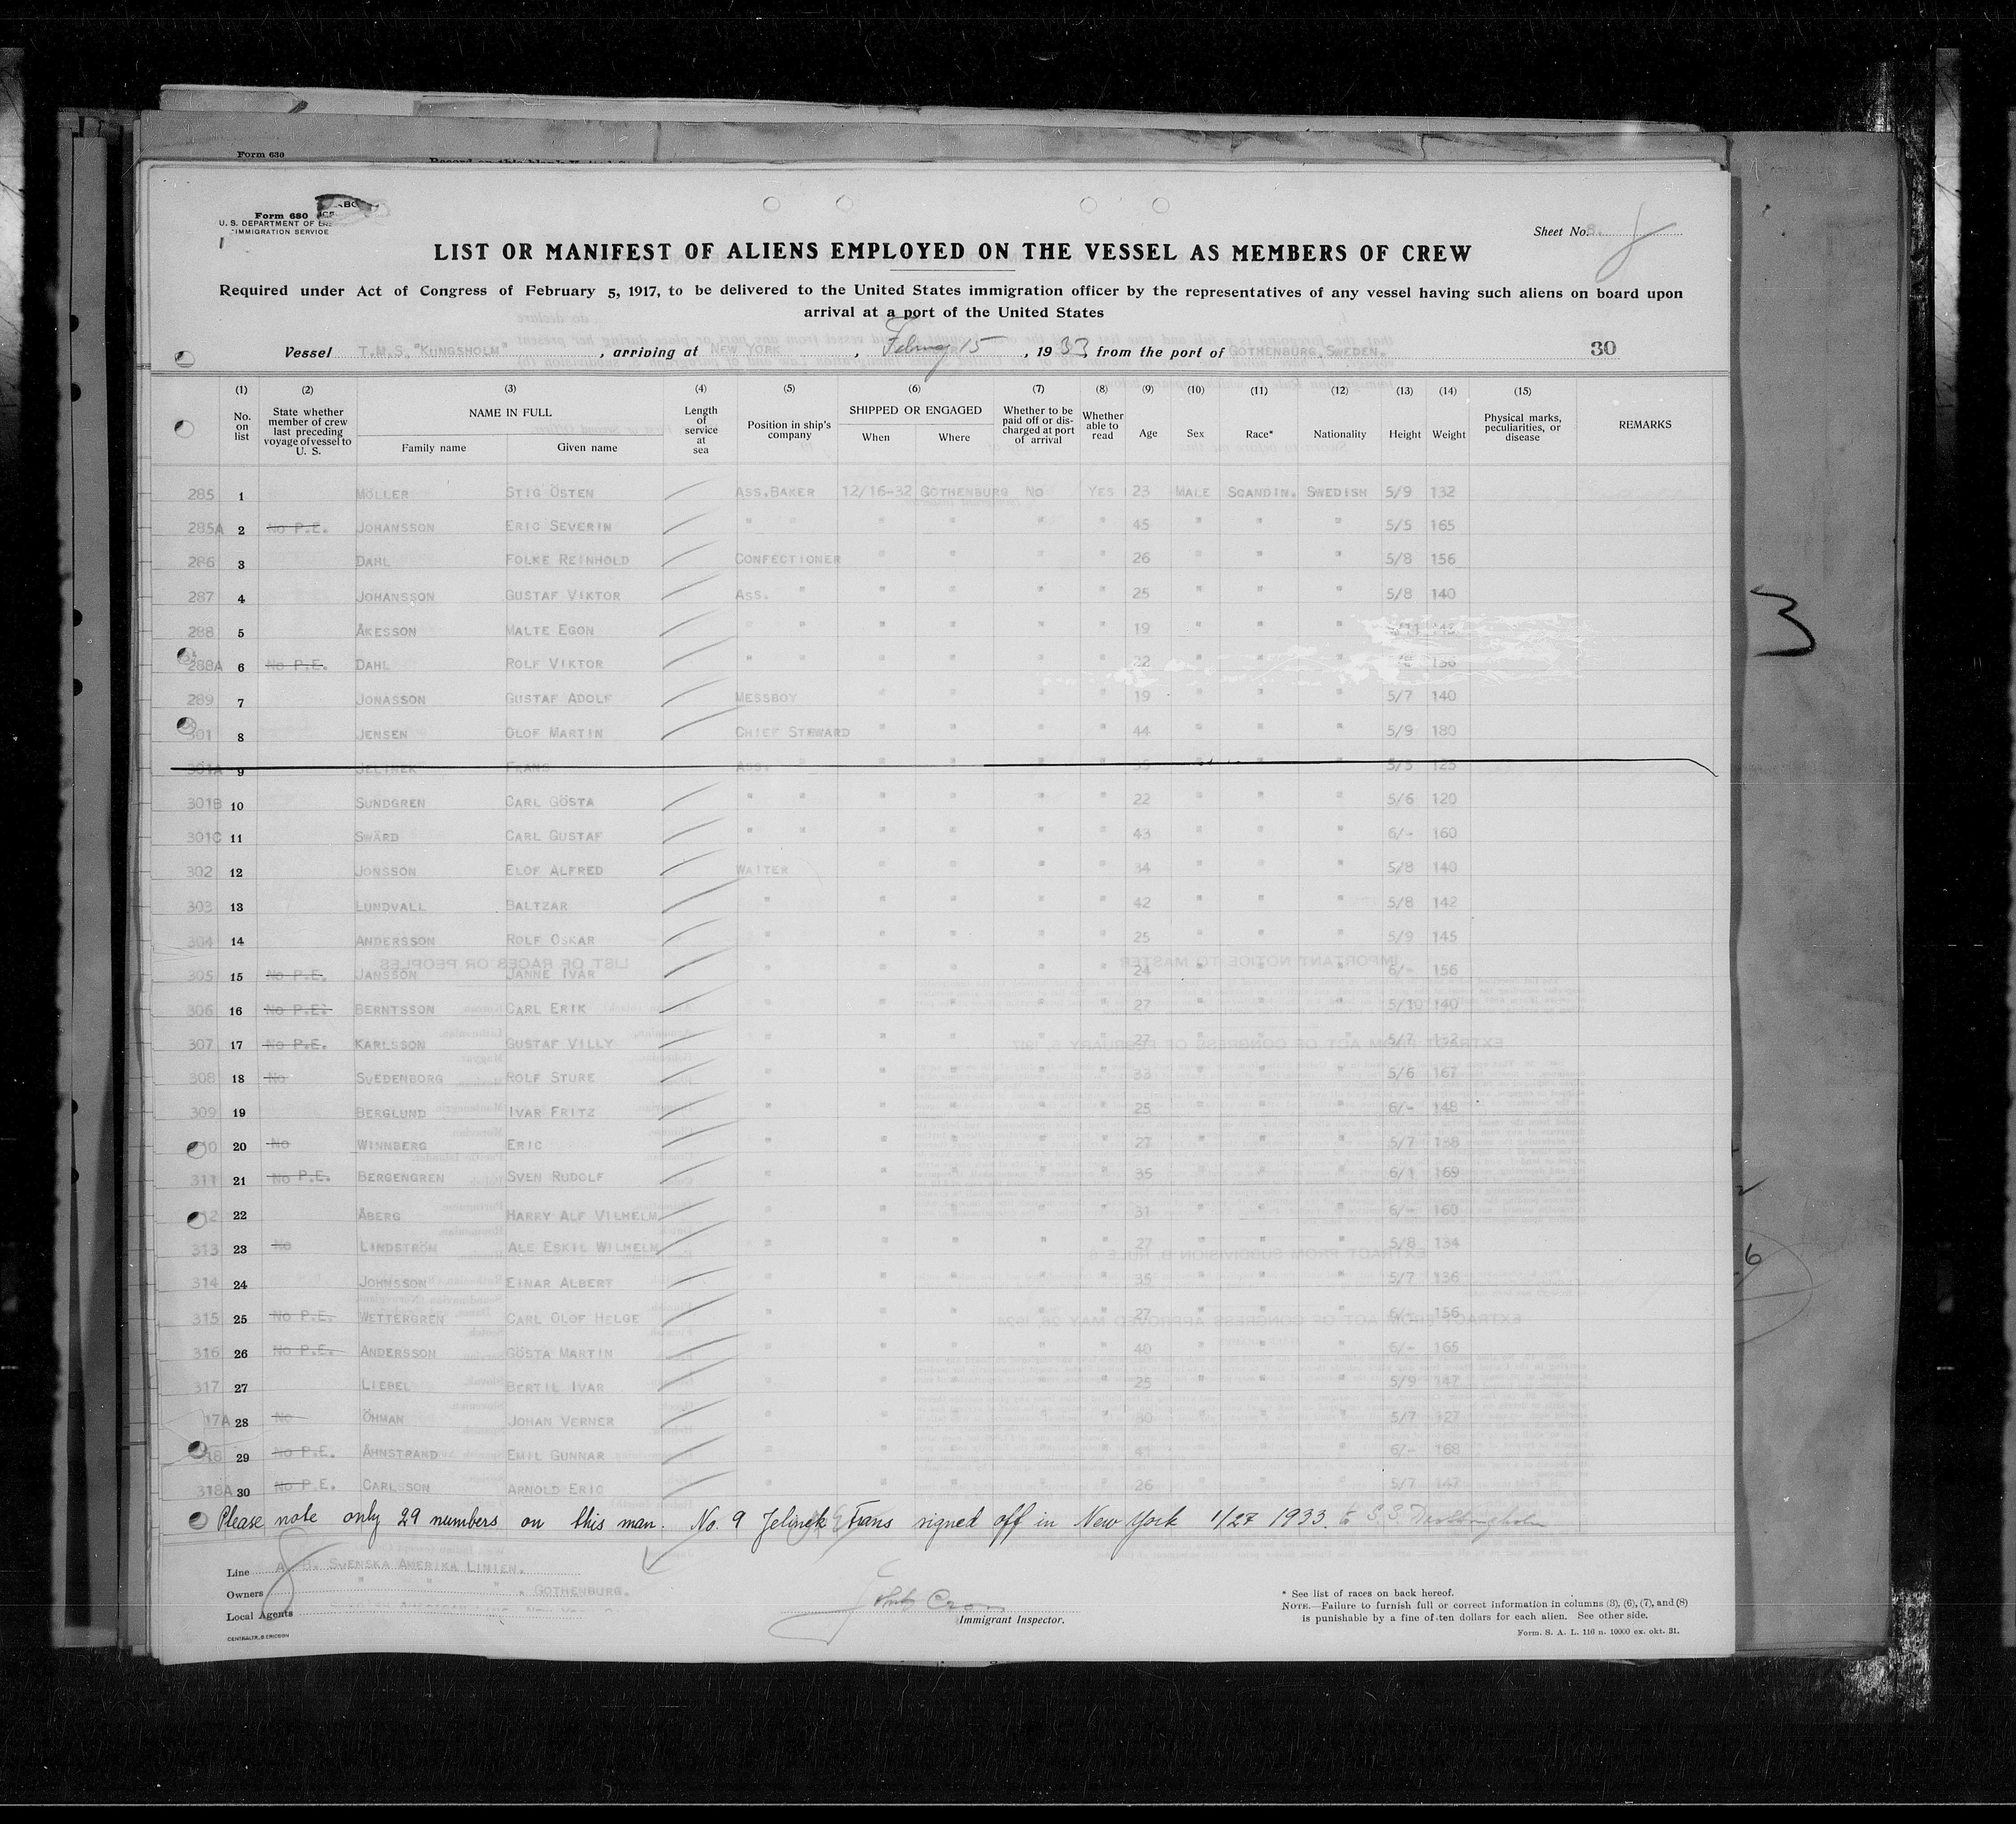 Form 630
Form 680
U. S. DEPARTMENT OF
IMMIGRATION SERVICE
Sheet No. 8.
LIST OR MANIFEST OF ALIENS EMPLOYED ON THE VESSEL AS MEMBERS OF CREW
Required under Act of Congress of February 5, 1917, to be delivered to the United States immigration officer by the representatives of any vessel having such aliens on board upon
arrival at a port of the United States
Vessel T.M.S. "KUNGSHOLM", arriving at NEW YORK, February 15, 1933, from the port of GOTHENBURG, SWEDEN. 30
(1) (2) (3) (4) (5) (6) (7) (8) (9) (10) (11) (12) (13) (14) (15)
No. on list State whether member of crew last preceding voyage of vessel to U. S. NAME IN FULL Family name Given name Length of service at sea Position in ship's company SHIPPED OR ENGAGED When Where Whether to be paid off or discharged at port of arrival Whether able to read Age Sex Race* Nationality Height Weight Physical marks, peculiarities, or disease REMARKS
285 1 MÖLLER STIG ÖSTEN ASS.BAKER 12/16-32 GOTHENBURG NO YES 23 MALE SCANDIN. SWEDISH 5/9 132
285A 2 NO P.E. JOHANSSON ERIC SEVERIN " " " " " " 45 " " " 5/5 165
286 3 DAHL FOLKE REINHOLD CONFECTIONER " " " " 26 " " " 5/8 156
287 4 JOHANSSON GUSTAF VIKTOR ASS. " " " " " 25 " " " 5/8 140
288 5 ÅKESSON MALTE EGON " " " " " " 19 " " "
288A 6 NO P.E. DAHL ROLF VIKTOR " " " " " " 22 " " " 156
289 7 JONASSON GUSTAF ADOLF MESSBOY " " " " 19 " " " 5/7 140
301 8 JENSEN OLOF MARTIN CHIEF STEWARD " " " " 44 " " " 5/9 180
301A 9 JELINEK FRANS ASS. " " " " " 35 " " " 5/5 125
301B 10 SUNDGREN CARL GÖSTA " " " " " " 22 " " " 5/6 120
301C 11 SWÄRD CARL GUSTAF " " " " " " 43 " " " 6/- 160
302 12 JONSSON ELOF ALFRED WAITER " " " " 34 " " " 5/8 140
303 13 LUNDVALL BALTZAR " " " " " 42 " " " 5/8 142
304 14 ANDERSSON ROLF OSKAR " " " " " 25 " " " 5/9 145
305 15 NO P.E. JANSSON JANNE IVAR " " " " " 24 " " " 6/- 156
306 16 NO P.E. BERNTSSON CARL ERIK " " " " " 27 " " " 5/10 140
307 17 NO P.E. KARLSSON GUSTAF VILLY " " " " " 27 " " " 5/7 152
308 18 NO SVEDENBORG ROLF STURE " " " " " 33 " " " 5/6 167
309 19 BERGLUND IVAR FRITZ " " " " " 25 " " " 6/- 148
20 NO WINNBERG ERIC " " " " " 27 " " " 5/7 138
311 21 NO P.E. BERGENGREN SVEN RUDOLF " " " " " 35 " " " 6/1 169
22 ÅBERG HARRY ALF VILHELM " " " " " 31 " " " 6/- 160
313 23 NO LINDSTRÖM ALE ESKIL WILHELM " " " " " 27 " " " 5/8 134
314 24 JOHNSSON EINAR ALBERT " " " " " 35 " " " 5/7 136
315 25 NO P.E. WETTERGREN CARL OLOF HELGE " " " " " 27 " " " 6/- 156
316 26 NO P.E. ANDERSSON GÖSTA MARTIN " " " " " 40 " " " 6/- 165
317 27 LIEBEL BERTIL IVAR " " " " " 25 " " " 5/9 147
17A 28 NO ÖHMAN JOHAN VERNER " " " " " 30 " " " 5/7 127
18 29 NO P.E. ÅHNSTRAND EMIL GUNNAR " " " " " 41 " " " 6/- 168
318A 30 NO P.E. CARLSSON ARNOLD ERIC " " " " " 26 " " " 5/7 147
Please note only 29 numbers on this man. No. 9 Jelinek Frans signed off in New York 1/27 1933. to S.S. Drottningholm
Line A.-B. SVENSKA AMERIKA LINIEN.
Owners " " " , GOTHENBURG.
Local Agents
CENTRALTR., G. ERICSON
Immigrant Inspector.
* See list of races on back hereof.
NOTE.—Failure to furnish full or correct information in columns (3), (6), (7), and (8)
is punishable by a fine of ten dollars for each alien. See other side.
Form. S. A. L. 116 n. 10000 ex. okt. 31.
3
6